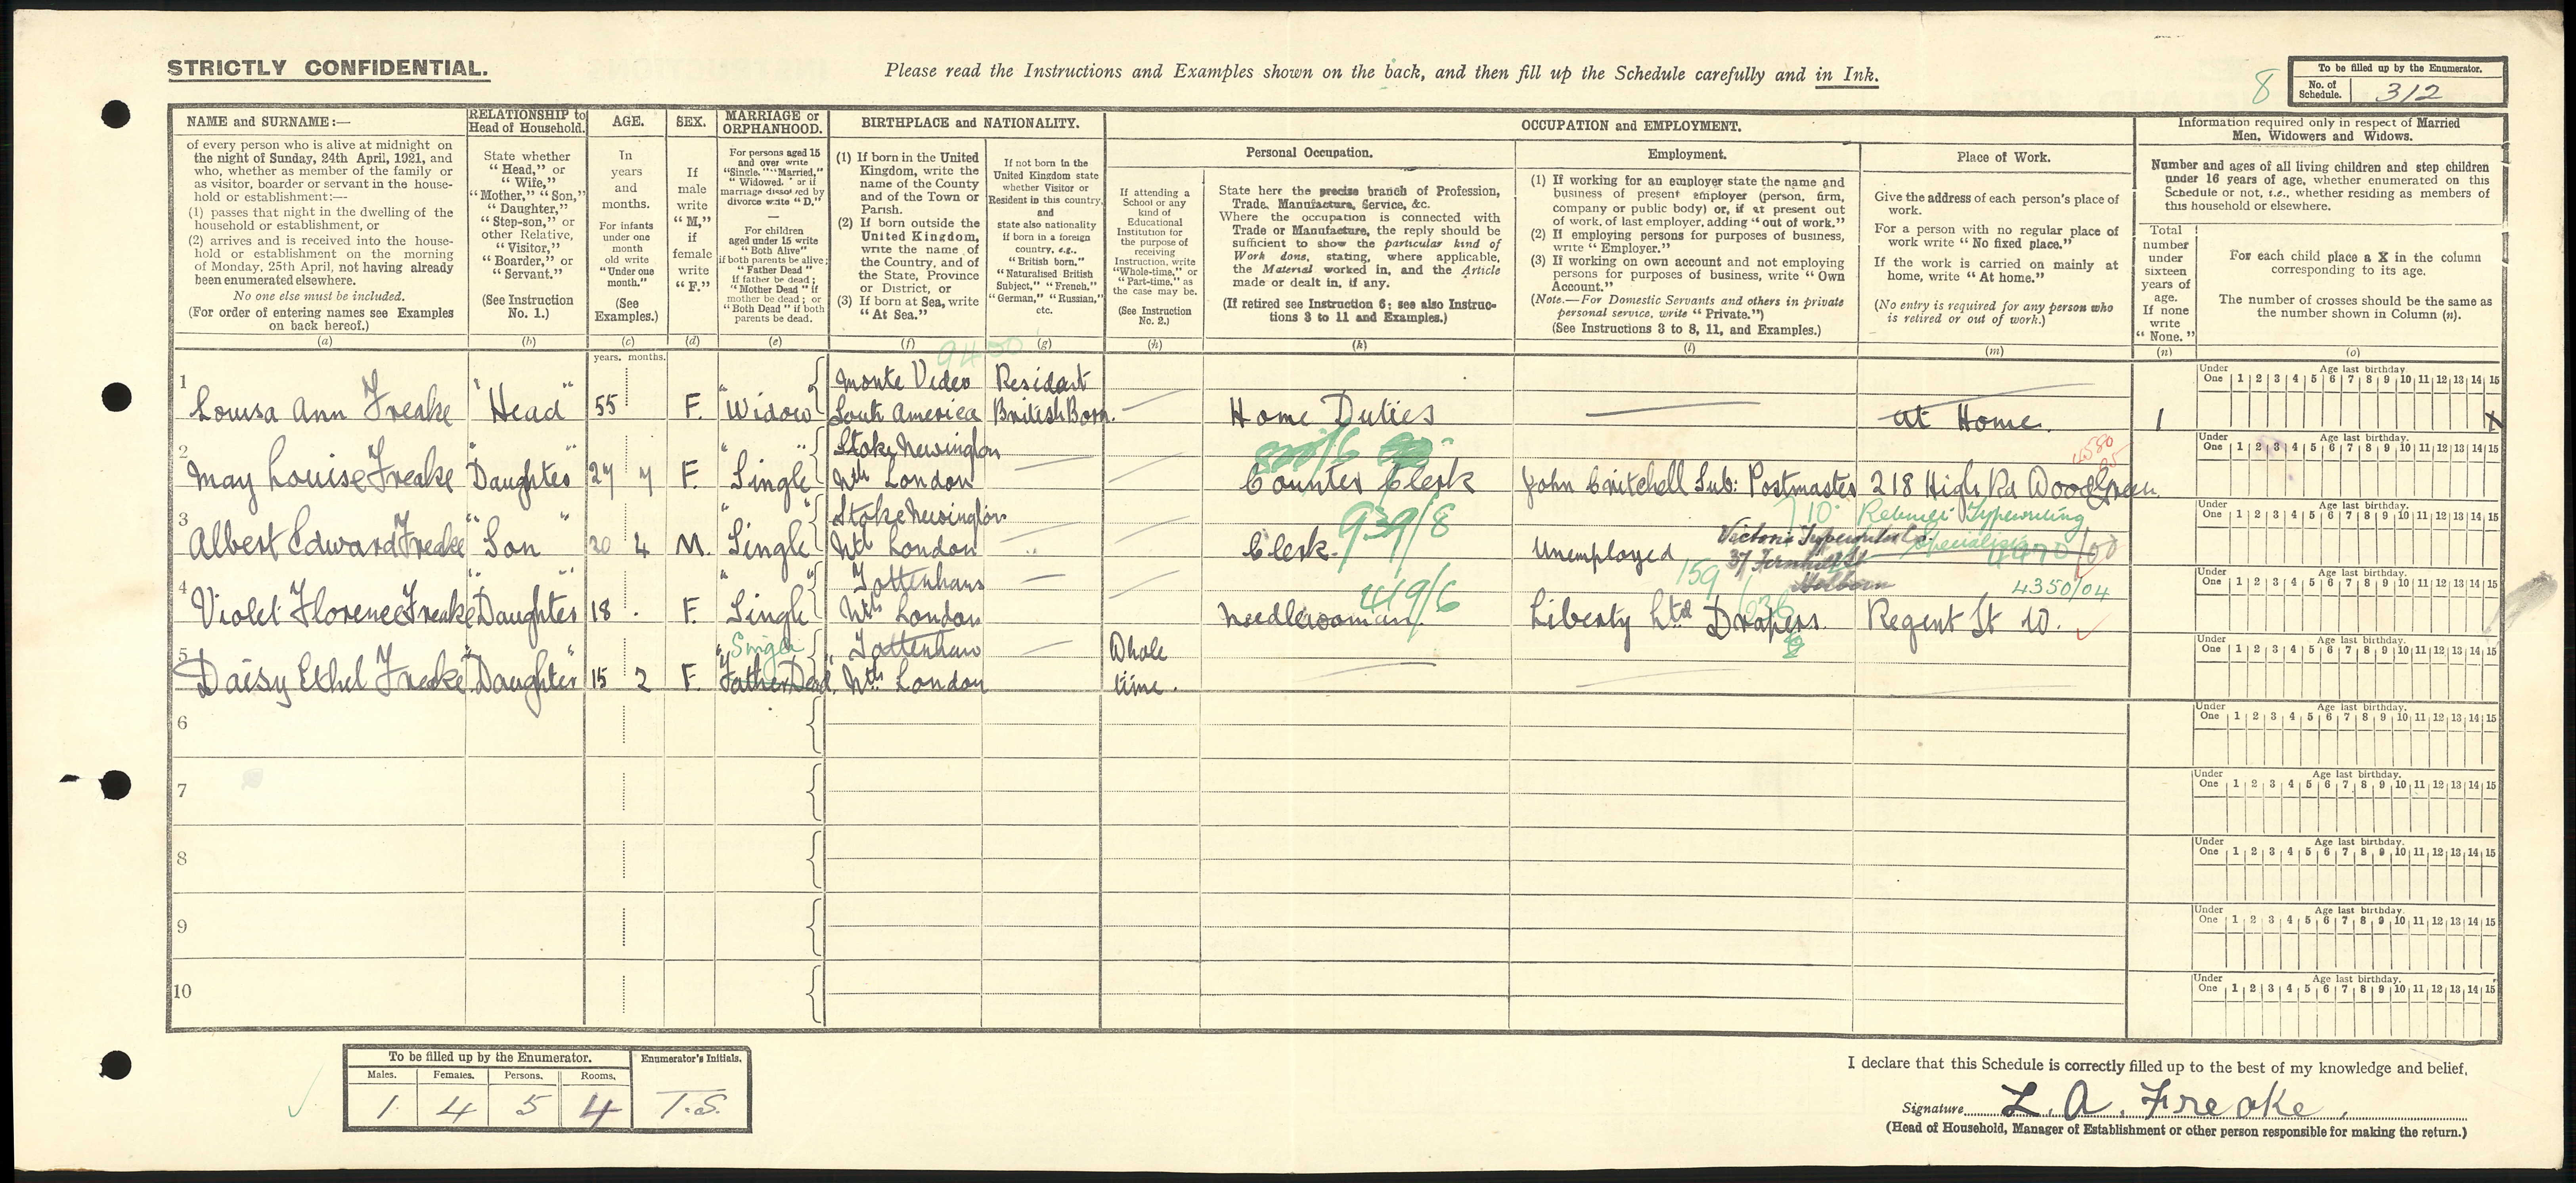 STRICTLY CONFIDENTIAL.
Please read the Instructions and Examples shown on the back, and then fill up the Schedule carefully and in Ink.
8
To be filled up by the Enumerator.
No. of Schedule. 312
NAME and SURNAME:—
of every person who is alive at midnight on
the night of Sunday, 24th April, 1921, and
who, whether as member of the family or
as visitor, boarder or servant in the house-
hold or establishment:—
(1) passes that night in the dwelling of the
household or establishment, or
(2) arrives and is received into the house-
hold or establishment on the morning
of Monday, 25th April, not having already
been enumerated elsewhere.
No one else must be included.
(For order of entering names see Examples
on back hereof.)
(a)
RELATIONSHIP to
Head of Household.
State whether
"Head," or
"Wife,"
"Mother," "Son,"
"Daughter,"
"Step-son," or
other Relative,
"Visitor,"
"Boarder," or
"Servant."
(See Instruction
No. 1.)
(b)
AGE.
In
years
and
months.
For infants
under one
month
old write
"Under one
month."
(See
Examples.)
(c)
SEX.
If
male
write
"M,"
if
female
write
"F."
(d)
MARRIAGE or
ORPHANHOOD.
For persons aged 15
and over write
"Single," "Married,"
"Widowed," or if
marriage dissolved by
divorce write "D."
—
For children
aged under 15 write
"Both Alive"
if both parents be alive;
"Father Dead"
if father be dead;
"Mother Dead" if
mother be dead; or
"Both Dead" if both
parents be dead.
(e)
BIRTHPLACE and NATIONALITY.
(1) If born in the United
Kingdom, write the
name of the County
and of the Town or
Parish.
(2) If born outside the
United Kingdom,
write the name of
the Country, and of
the State, Province
or District, or
(3) If born at Sea, write
"At Sea."
(f)
If not born in the
United Kingdom state
whether Visitor or
Resident in this country,
and
state also nationality
if born in a foreign
country, e.g.,
"British born."
"Naturalised British
Subject," "French,"
"German," "Russian,"
etc.
(g)
OCCUPATION and EMPLOYMENT.
Personal Occupation.
If attending a
School or any
kind of
Educational
Institution for
the purpose of
receiving
Instruction, write
"Whole-time," or
"Part-time," as
the case may be.
(See Instruction
No. 2.)
(h)
State here the precise branch of Profession,
Trade, Manufacture, Service, &c.
Where the occupation is connected with
Trade or Manufacture, the reply should be
sufficient to show the particular kind of
Work done, stating, where applicable,
the Material worked in, and the Article
made or dealt in, if any.
(If retired see Instruction 6: see also Instruc-
tions 3 to 11 and Examples.)
(k)
Employment.
(1) If working for an employer state the name and
business of present employer (person, firm,
company or public body) or, if at present out
of work, of last employer, adding "out of work."
(2) If employing persons for purposes of business,
write "Employer."
(3) If working on own account and not employing
persons for purposes of business, write "Own
Account."
(Note.—For Domestic Servants and others in private
personal service, write "Private.")
(See Instructions 3 to 8, 11, and Examples.)
(l)
Place of Work.
Give the address of each person's place of
work.
For a person with no regular place of
work write "No fixed place."
If the work is carried on mainly at
home, write "At home."
(No entry is required for any person who
is retired or out of work.)
(m)
Information required only in respect of Married
Men, Widowers and Widows.
Number and ages of all living children and step children
under 16 years of age, whether enumerated on this
Schedule or not, i.e., whether residing as members of
this household or elsewhere.
Total
number
under
sixteen
years of
age.
If none
write
"None."
(n)
For each child place a X in the column
corresponding to its age.
The number of crosses should be the same as
the number shown in Column (n).
(o)
years. months.
9400
1 Louisa Ann Freake "Head" 55 F. "Widow" Monte Video South America Resident British Born. Home Duties at Home. 1 X
2 May Louise Freake "Daughter" 27 7 F. "Single" Stoke Newington Nth London Counter Clerk John Critchell Sub: Postmaster 218 High Rd Wood Green
3 Albert Edward Freake "Son" 20 4 M. "Single" Stoke Newington Nth London Clerk. 939/8 Unemployed Victoria Typewriter Co. Holborn
4 Violet Florence Freake "Daughter" 18 . F. "Single" Tottenham Nth London Needlewoman. 419/6 159 Liberty Ltd Drapers. Regent St W. 4350/04
5 Daisy Ethel Freake "Daughter" 15 2 F. Single "Father Dead" Tottenham Nth London Whole time.
6
7
8
9
10
Under One 1 2 3 4 5 6 7 8 9 10 11 12 13 14 15
Age last birthday.
To be filled up by the Enumerator.
Males. Females. Persons. Rooms.
1. 4 5 4
Enumerator's Initials.
T.S.
I declare that this Schedule is correctly filled up to the best of my knowledge and belief,
Signature L. A. Freake.
(Head of Household, Manager of Establishment or other person responsible for making the return.)